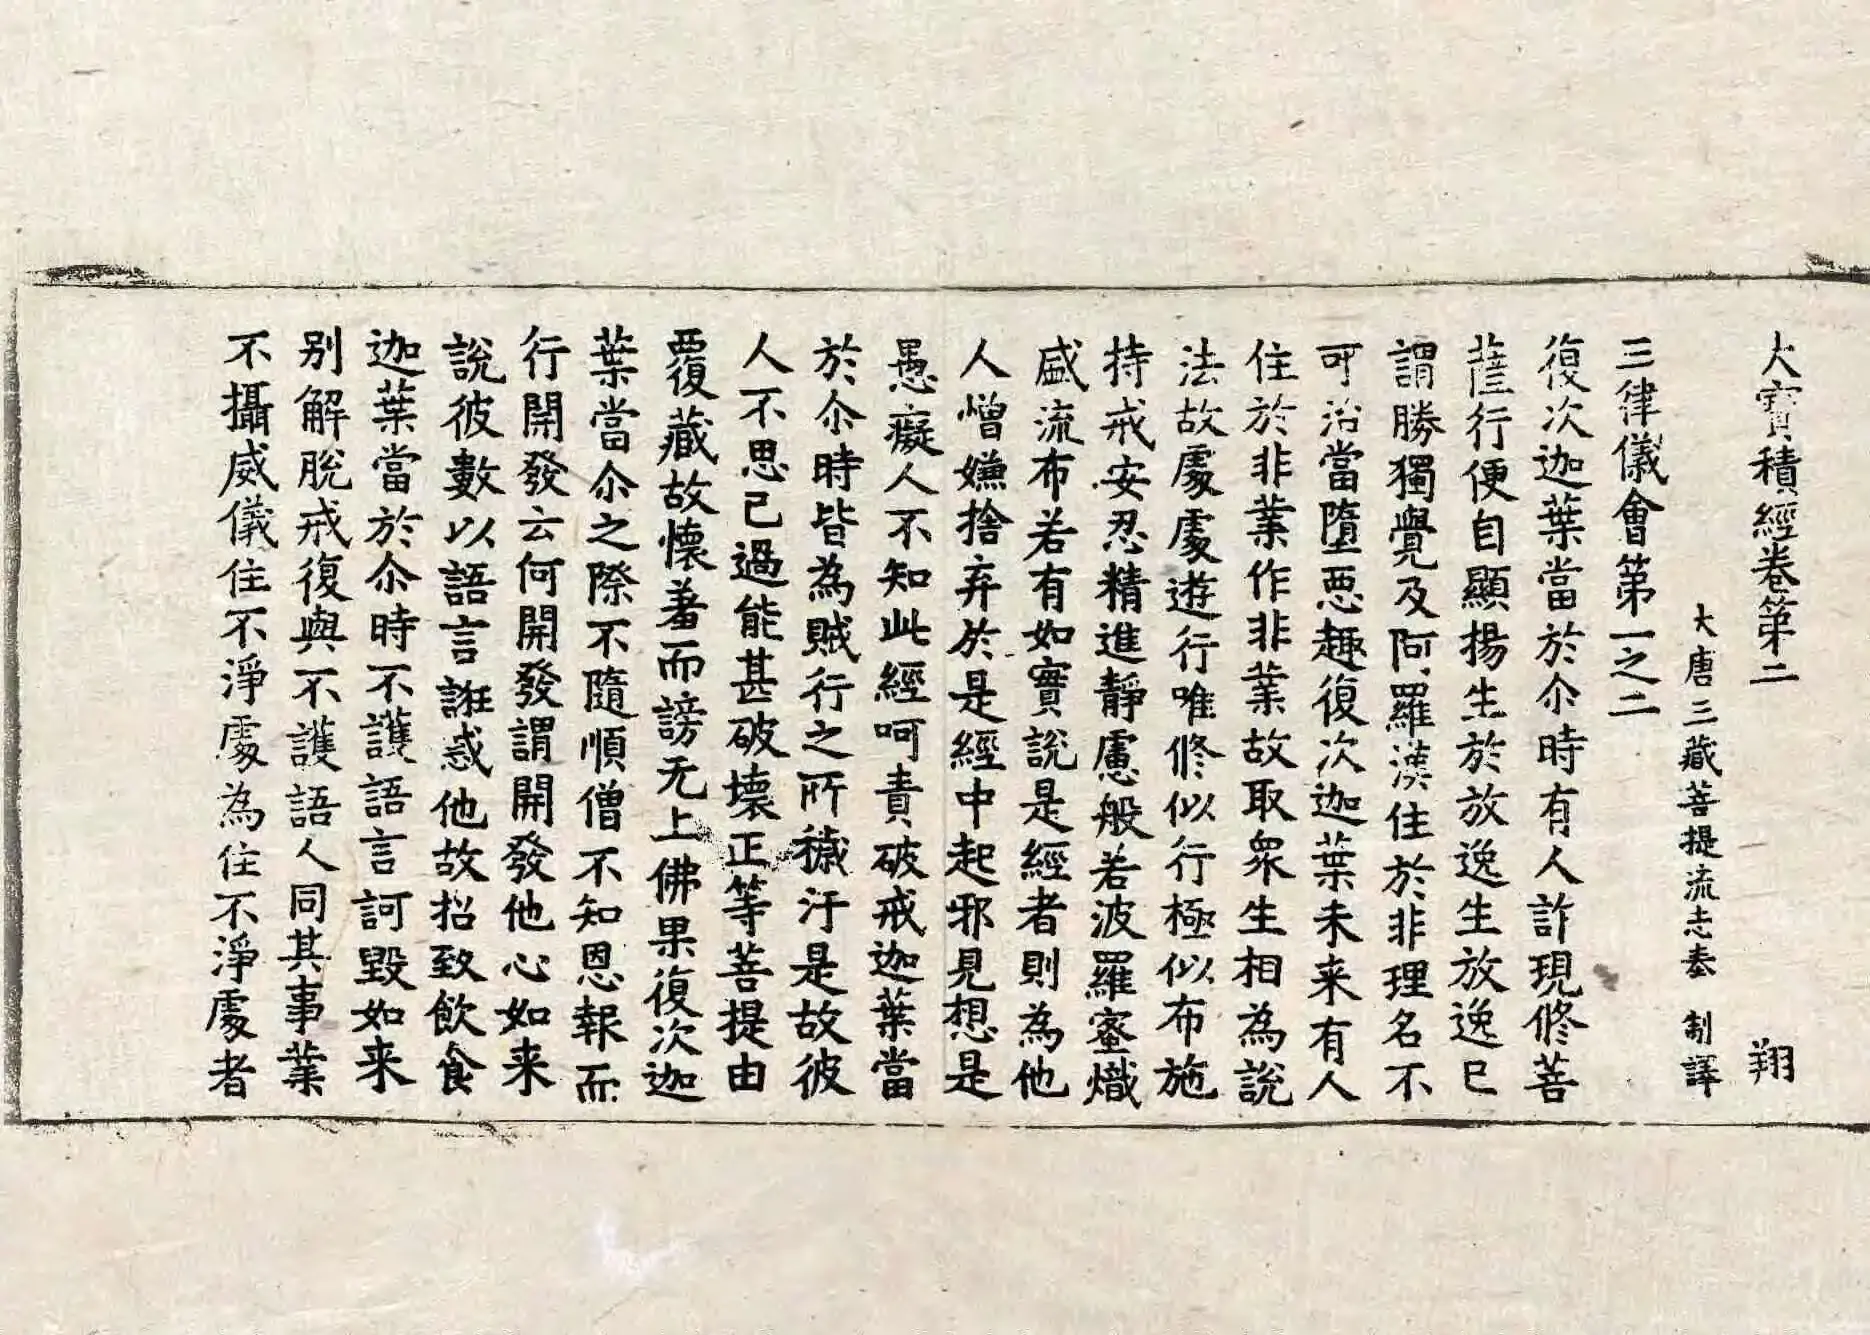 大寶積經卷第二 翔
大唐三藏菩提流志奉 制譯
三律儀會第一之二
復次迦葉當於尒時有人詐現修菩
薩行便自顯揚生於放逸生放逸已
謂勝獨覺及阿羅漢住於非理名不
可治當墮惡趣復次迦葉未来有人
住於非業作非業故取衆生相為說
法故處處遊行唯修似行極似布施
持戒安忍精進靜慮般若波羅蜜熾
盛流布若有如實說是經者則為他
人憎嫌捨弃於是經中起邪見想是
愚癡人不知此經呵責破戒迦葉當
於尒時皆為賊行之所穢汙是故彼
人不思己過能甚破壞正等菩提由
覆藏故懷羞而謗无上佛果復次迦
葉當尒之際不隨順僧不知恩報而
行開發云何開發謂開發他心如来
說彼數以語言誑惑他故招致飲食
迦葉當於尒時不護語言訶毀如来
別解脫戒復與不護語人同其事業
不攝威儀住不淨處為住不淨處者